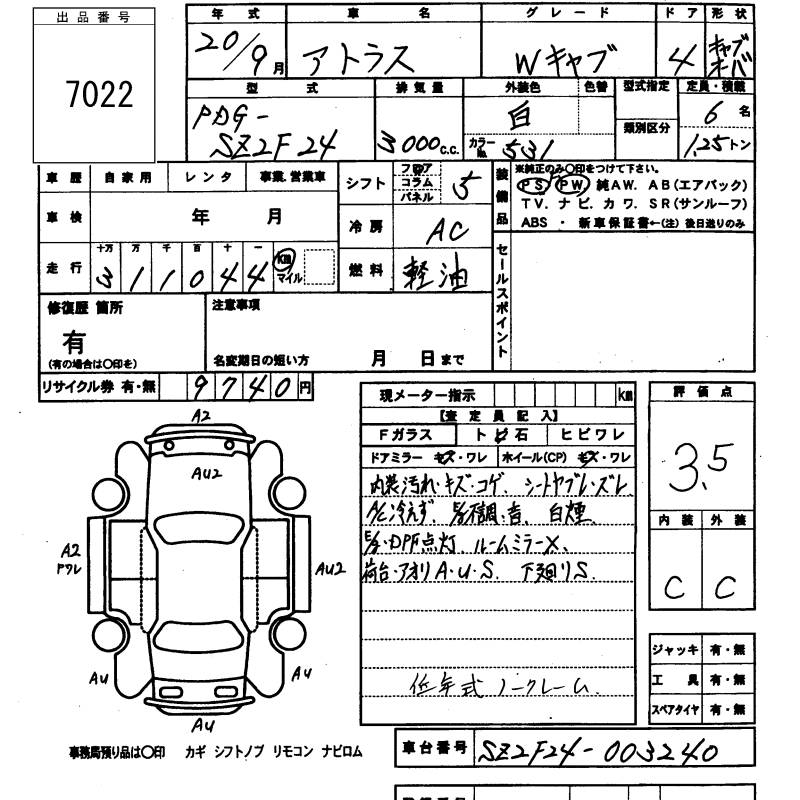 出品番号
7022
年式 車名 グレード ドア 形状
20/9月 アトラス Wキャブ 4 キャブオーバ
型式 排気量 外装色 色替 型式指定 定員・積載
PDG-SZ2F24 3000c.c. 白 類別区分 6名
カラーNo. 531 1.25トン
車歴 自家用 レンタ 事業.営業車 シフト フロア コラム パネル 5
装備品 ※純正のみ〇印をつけて下さい。
PS PW 純AW. AB(エアバック)
TV. ナビ. カワ. SR(サンルーフ)
ABS ・ 新車保証書←(注) 後日送りのみ
車検 年 月 冷房 AC
走行 十万 万 千 百 十 一
311044 km マイル 燃料 軽油
セールスポイント
修復歴 箇所 注意事項
有
(有の場合は〇印を) 名変期日の短い方 月 日まで
リサイクル券 有・無 9740円
現メーター指示 km
【査定員記入】
Fガラス トビ石 ヒビワレ
ドアミラー キズ・ワレ ホイール(CP) キズ・ワレ
内装汚れ・キズ・コゲ. シートヤブレ・ズレ
A/C冷えず. E/g不調.音. 白煙
E/g・DPF点灯. ルームミラーX.
荷台・アオリA・U・S. 下廻りS.
低年式 ノークレーム.
評価点
3.5
内装 外装
C C
ジャッキ 有・無
工具 有・無
スペアタイヤ 有・無
A2
AU2
A2
ドワレ
AU2
AU
AU
AU
事務局預り品は〇印 カギ シフトノブ リモコン ナビロム
車台番号 SZ2F24-003240